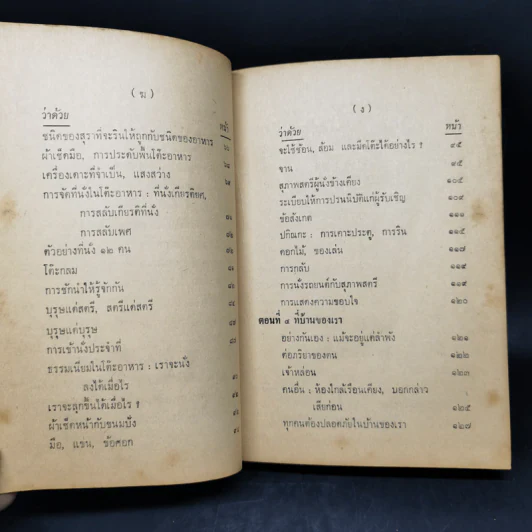 ( ฆ )
ว่าด้วย หน้า
ชนิดของสุราที่จะรินให้ถูกกับชนิดของอาหาร
ผ้าเช็ดมือ, การประดับพื้นโต๊ะอาหาร
เครื่องเคาะที่จำเป็น, แสงสว่าง
การจัดที่นั่งในโต๊ะอาหาร : ที่นั่งเกียรติยศ,
การสลับเกียรติที่นั่ง
การสลับเพศ
ตัวอย่างที่นั่ง ๑๒ คน
โต๊ะกลม
การชักนำให้รู้จักกัน
บุรุษแด่สตรี, สตรีแด่สตรี
บุรุษแด่บุรุษ
การเข้านั่งประจำที่
ธรรมเนียมในโต๊ะอาหาร : เราจะนั่ง
ลงได้เมื่อไร
เราจะลุกขึ้นได้เมื่อไร ?
ผ้าเช็ดหน้ากับขนมปัง
มือ, แขน, ข้อศอก
( ง )
ว่าด้วย หน้า
จะใช้ช้อน, ส้อม และมีดโต๊ะได้อย่างไร ? ๙๕
จาน ๙๕
สุภาพสตรีผู้นั่งข้างเคียง ๑๐๕
ระเบียบให้การปรนนิบัติแก่ผู้รับเชิญ ๑๐๙
ข้อสังเกต ๑๑๑
ปกิณกะ : การเคาะประตู, การริน ๑๑๕
ดอกไม้, ของเล่น ๑๑๗
การกลับ ๑๑๙
การนั่งรถยนต์กับสุภาพสตรี ๑๑๙
การแสดงความขอบใจ ๑๒๐
ตอนที่ ๔ ที่บ้านของเรา
อย่างกันเอง : แม้จะอยู่แต่ลำพัง ๑๒๑
ต่อภริยาของตน ๑๒๒
เจ้าหล่อน ๑๒๓
คนอื่น : ห้องใกล้เรือนเคียง, บอกกล่าว
เสียก่อน ๑๒๕
ทุกคนต้องปลอดภัยในบ้านของเรา ๑๒๗